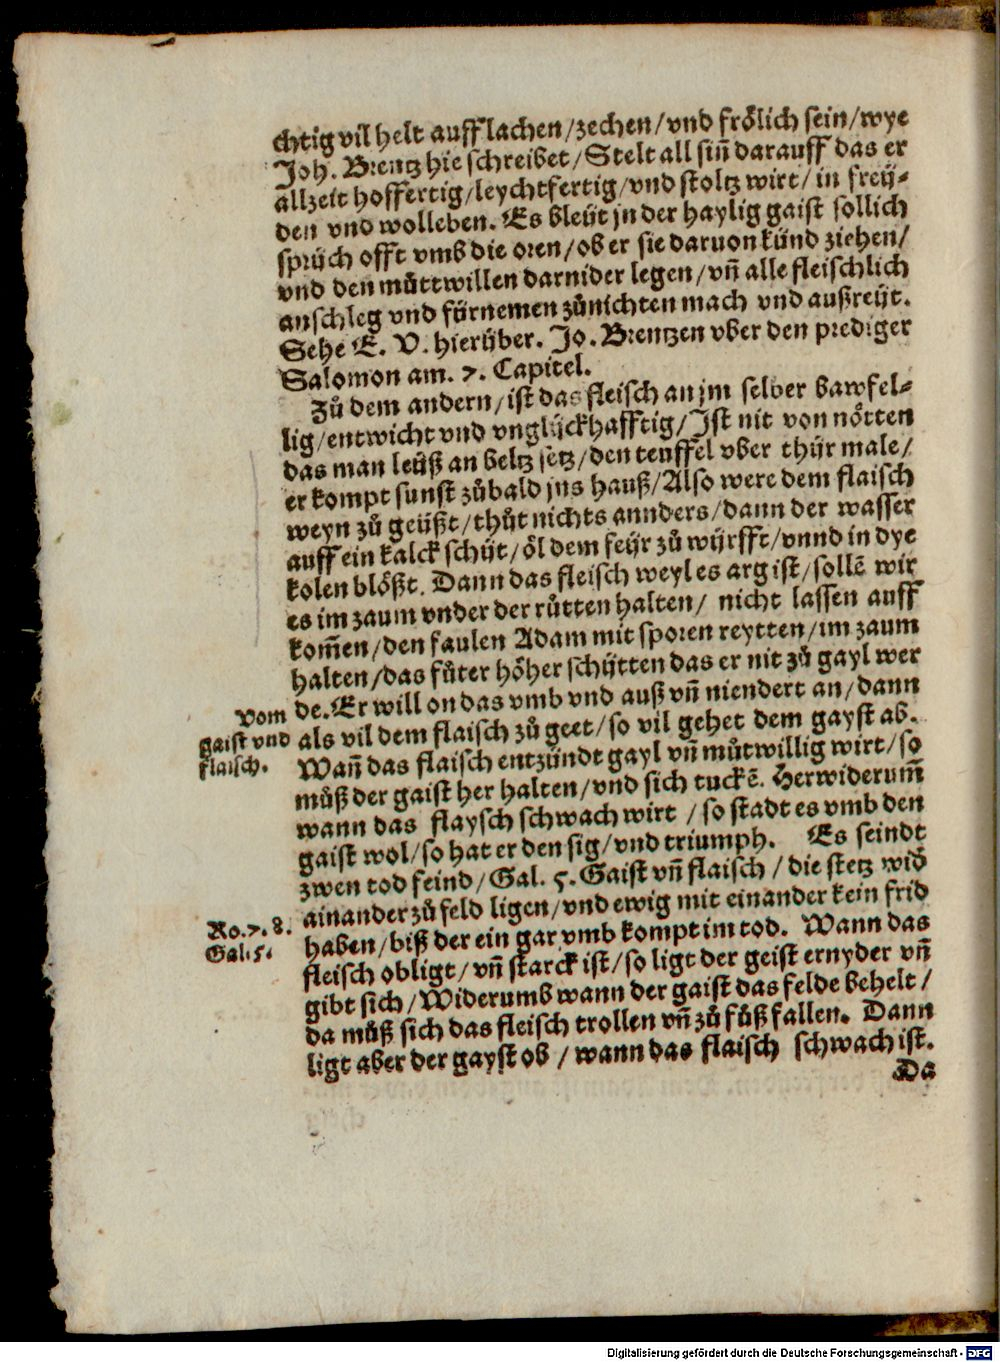 chtig vil helt auff lachen/zechen/vnd froͤlich sein/wye
Joh. Brentz hie schreibet/Stelt all siñ darauff das er
allzeit hoffertig/leychtfertig/vnd stoltz wirt/in freÿ⸗
den vnd wolleben. Es bleüt jn der haylig gaist sollich
sprüch offt vmb die oren/ob er sie daruon künd ziehen/
vnd den můttwillen darnider legen/vñ alle fleischlich
anschleg vnd fürnemen zůnichten mach vnd außreüt.
Sehe E. V. hierüber. Jo. Brentzen vber den prediger
Salomon am. 7. Capitel.
Zů dem andern/ist das fleisch an jm selber bawfel⸗
lig/entwicht vnd vnglückhafftig/Ist nit von noͤtten
das man leüß an beltz setz/den teuffel vber thür male/
er kompt sunst zůbald jns hauß/Also were dem flaisch
weyn zů geüßt/thůt nichts annders/dann der wasser
auff ein kalck schüt/oͤl dem feür zů würfft/vnnd in dye
kolen bloͤßt. Dann das fleisch weyl es arg ist/sollẽ wir
es im zaum vnder der růtten halten/ nicht lassen auff
kom̃en/den faulen Adam mit sporen reytten/im zaum
halten/das fůter hoͤher schütten das er nit zů gayl wer
de. Er will on das vmb vnd auß vñ niendert an/dann
als vil dem flaisch zů geet/so vil gehet dem gayst ab.
Vom
gaist vnd
flaisch.
Wañ das flaisch entzündt gayl vñ můtwillig wirt/so
můß der gaist her halten/vnd sich tuckẽ. Herwiderum̃
wann das flaysch schwach wirt /so stadt es vmb den
gaist wol/so hat er den sig/vnd triumph. Es seindt
zwen tod feind/Gal. 5. Gaist vñ flaisch /die stetz wid᷑
ainander zů feld ligen/vnd ewig mit einander kein frid
haben/biß der ein gar vmb kompt im tod. Wann das
Ro. 7. 8.
Gal. 5.
fleisch obligt/vñ starck ist/so ligt der geist ernyder vñ
gibt sich/Widerumb wann der gaist das felde behelt/
da můß sich das fleisch trollen vñ zů fůß fallen. Dann
ligt aber der gayst ob /wann das flaisch schwach ist.
Da
Digitalisierung gefördert durch die Deutsche Forschungsgemeinschaft - DFG